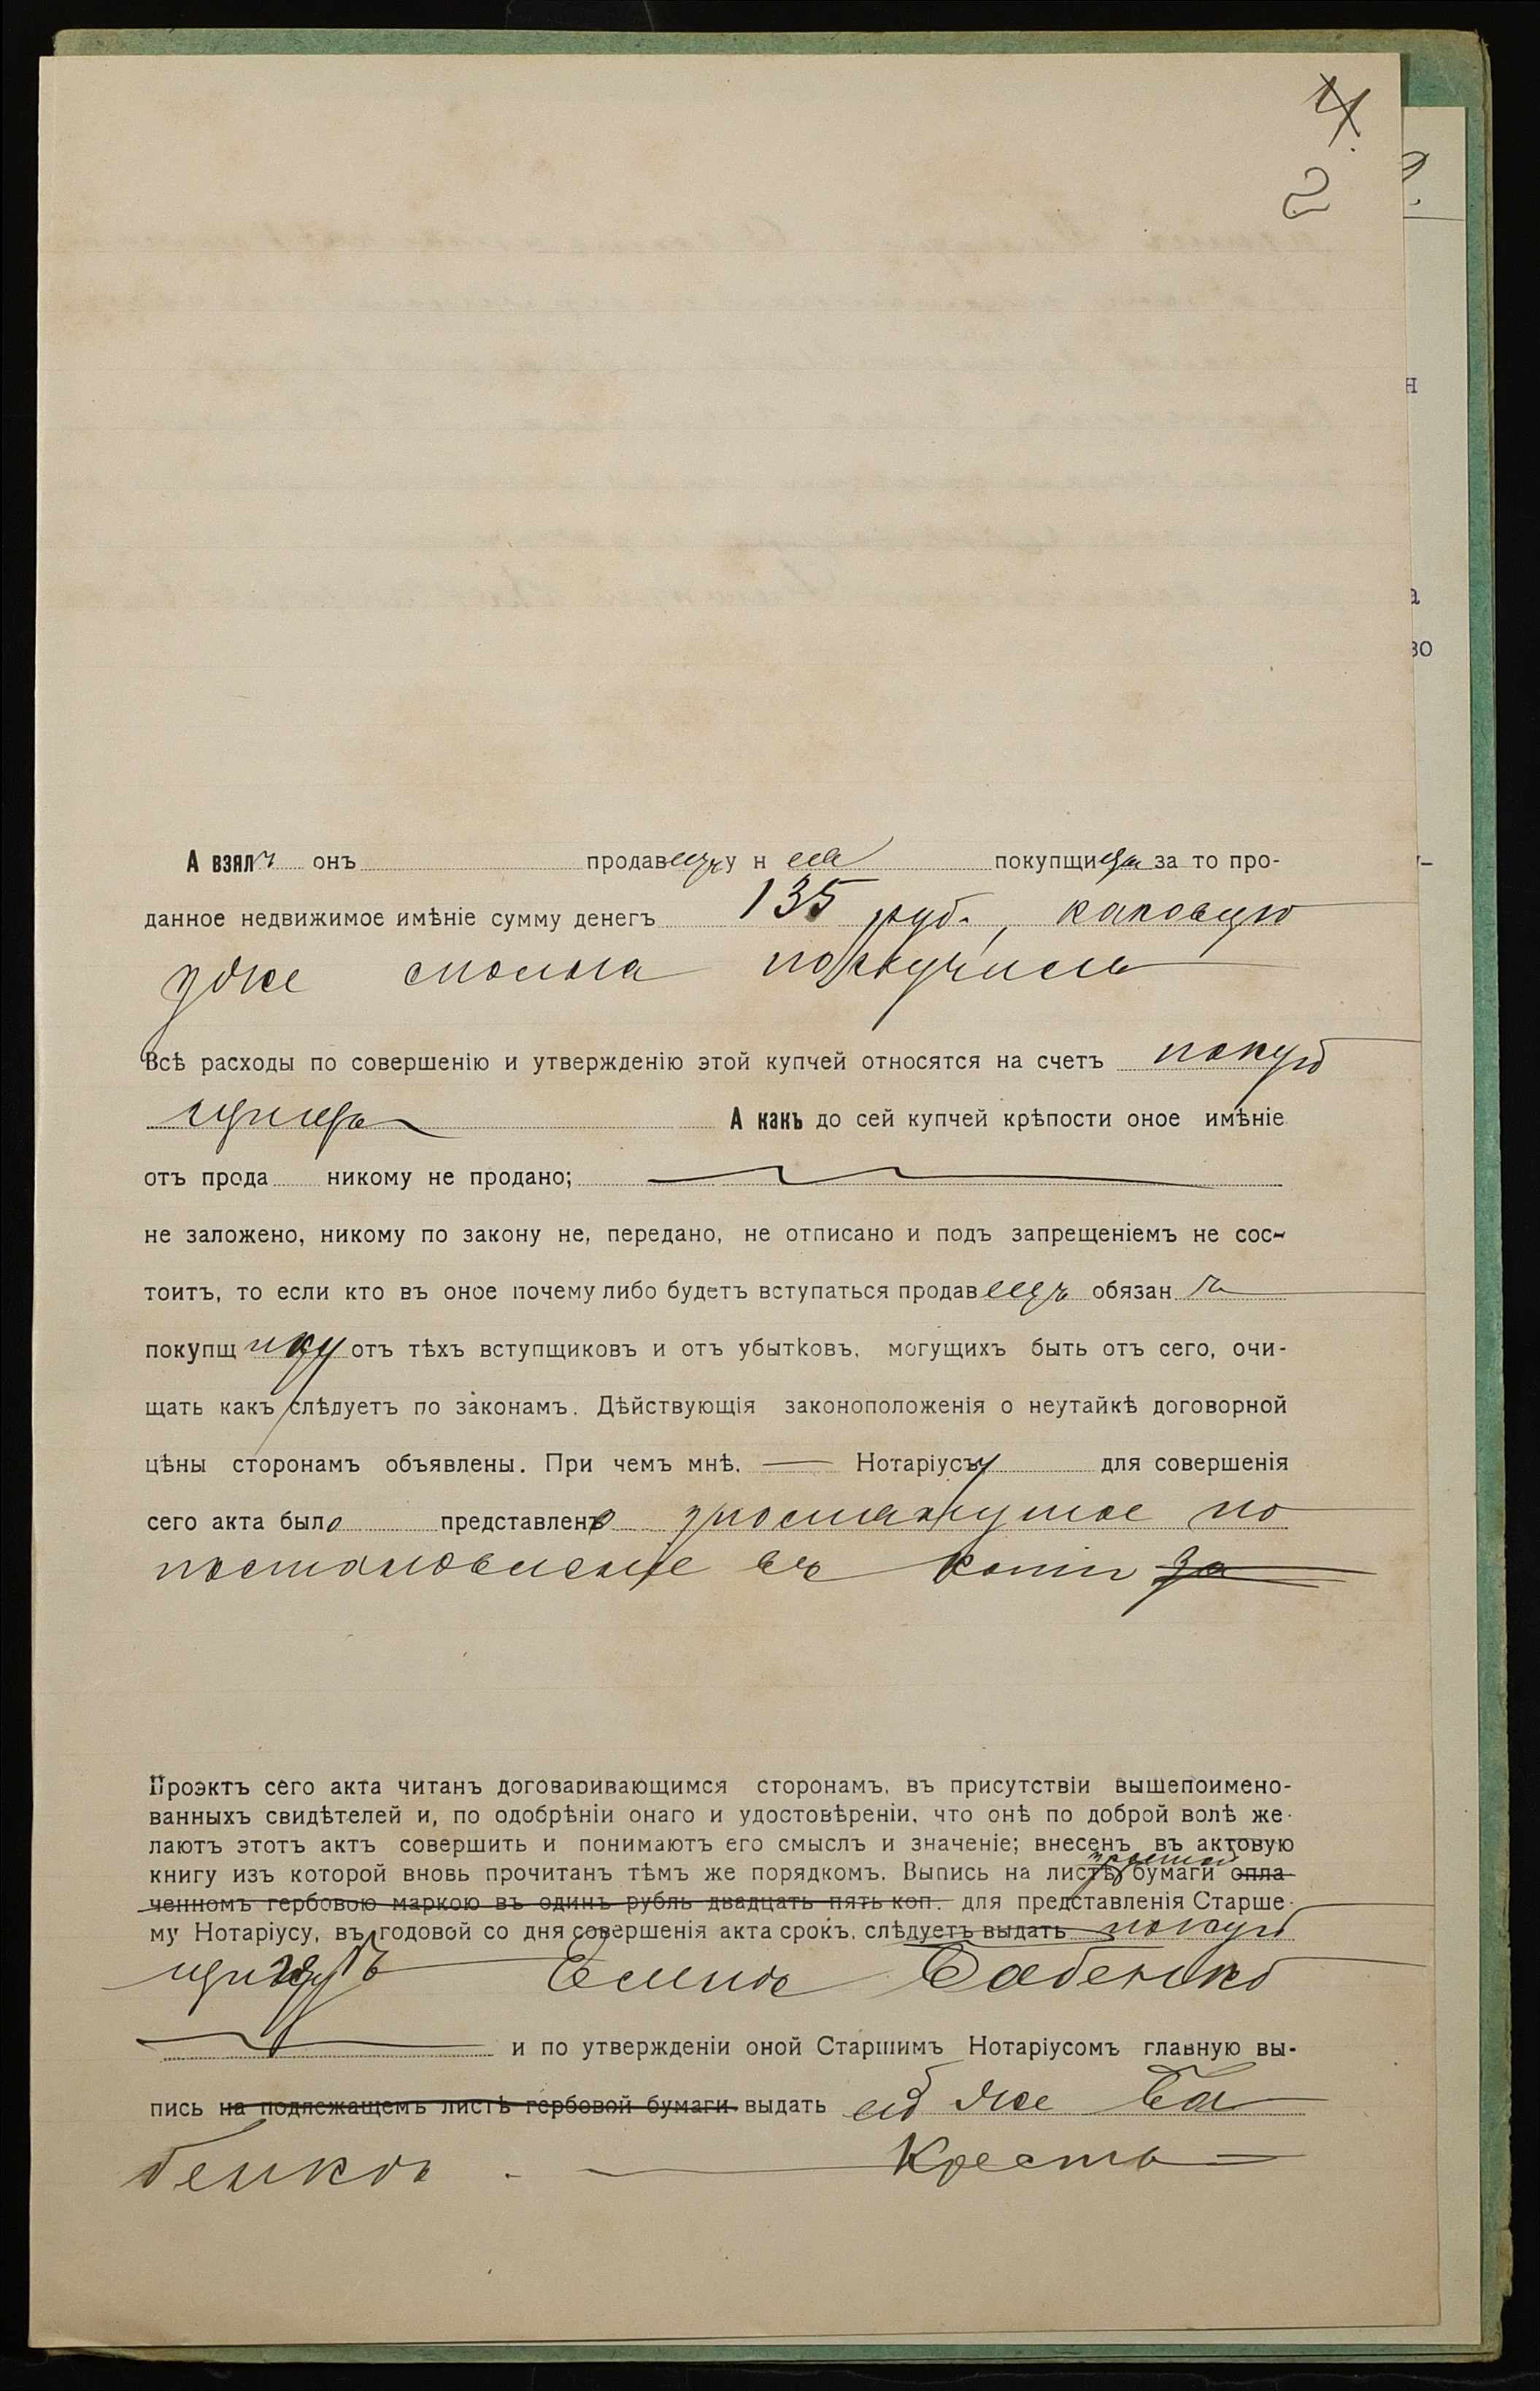 4
2
А взялъ онъ продавецъ у н ея покупщицы за то про-
данное недвижимое имѣніе сумму денегъ 135 руб., каковую
уже сполна получилъ
Всѣ расходы по совершенію и утвержденію этой купчей относятся на счетъ покуп
щицы А какъ до сей купчей крѣпости оное имѣніе
отъ прода никому не продано;
не заложено, никому по закону не, передано, не отписано и подъ запрещеніемъ не сос-
тоитъ, то если кто въ оное почему либо будетъ вступаться продавецъ обязан ъ
покупщицу отъ тѣхъ вступщиковъ и отъ убытковъ, могущихъ быть отъ сего, очи-
щать какъ слѣдуетъ по законамъ. Дѣйствующія законоположенія о неутайкѣ договорной
цѣны сторонамъ объявлены. При чемъ мнѣ, — Нотаріусу для совершенія
сего акта было представлено упомянутое по
постановленіе въ копіи за
Проэктъ сего акта читанъ договаривающимся сторонамъ, въ присутствіи вышепоимено-
ванныхъ свидѣтелей и, по одобрѣніи онаго и удостовѣреніи, что онѣ по доброй волѣ же-
лаютъ этотъ актъ совершить и понимаютъ его смыслъ и значеніе; внесенъ въ актовую
простой
книгу изъ которой вновь прочитанъ тѣмъ же порядкомъ. Выпись на листѣ бумаги опла
ченномъ гербовою маркою въ одинъ рубль двадцать пять коп. для представленія Старше-
му Нотаріусу, въ годовой со дня совершенія акта срокъ, слѣдуетъ выдать покуп
щицѣ Бабенко
и по утвержденіи оной Старшимъ Нотаріусомъ главную вы-
пись на подлежащемъ листѣ гербовой бумаги выдать ей же Ба
бенковъ. Кресть